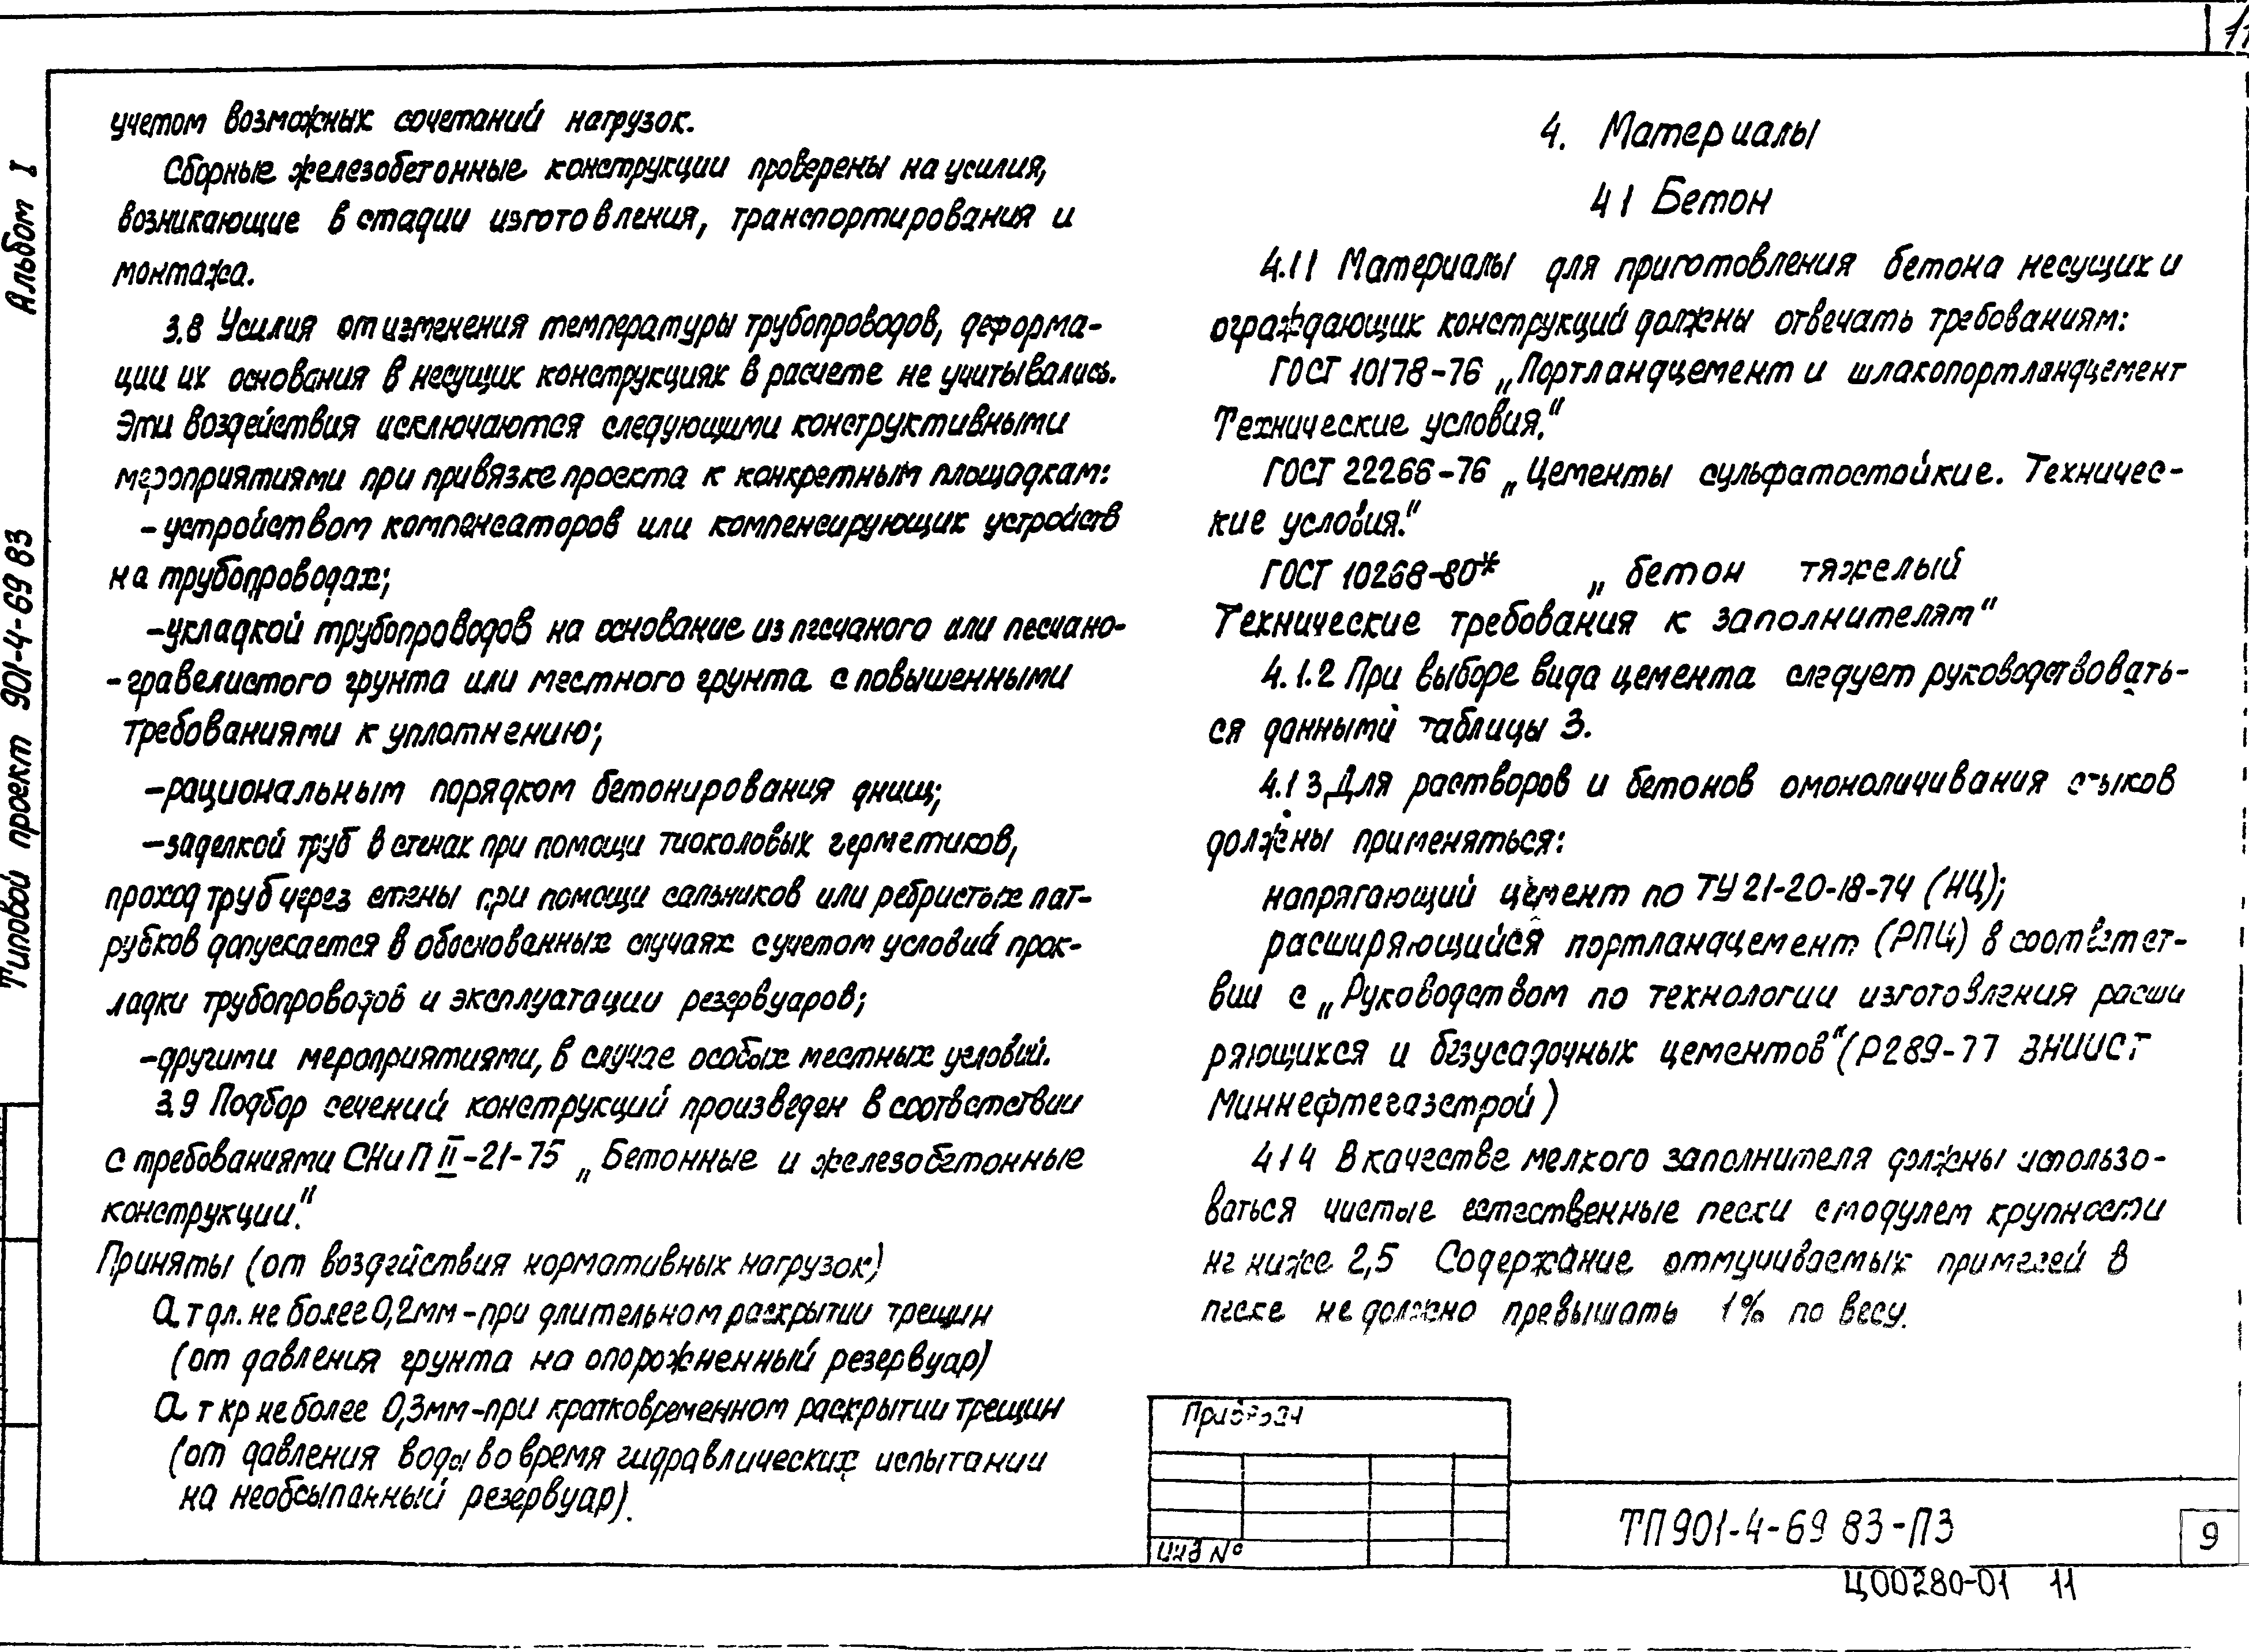 учетом возможных сочетаний нагрузок.
Сборные железобетонные конструкции проверены на усилия,
возникающие в стадии изготовления, транспортирования и
монтажа.
3.8 Усилия от изменения температуры трубопроводов, деформа-
ции их основания в несущих конструкциях в расчете не учитывались.
Эти воздействия исключаются следующими конструктивными
мероприятиями при привязке проекта к конкретным площадкам:
- устройством компенсаторов или компенсирующих устройств
на трубопроводах;
- укладкой трубопроводов на основание из песчаного или песчано-
- гравелистого грунта или местного грунта с повышенными
требованиями к уплотнению;
- рациональным порядком бетонирования днищ;
- заделкой труб в стенах при помощи тиоколовых герметиков,
проход труб через стены при помощи сальников или ребристых пат-
рубков допускается в обоснованных случаях с учетом условий прок-
ладки трубопроводов и эксплуатации резервуаров;
- другими мероприятиями, в случае особых местных условий.
3.9 Подбор сечений конструкций произведен в соответствии
с требованиями СНиП II-21-75 „Бетонные и железобетонные
конструкции."
Приняты (от воздействия нормативных нагрузок)
а т дл. не более 0,2мм - при длительном раскрытии трещин
(от давления грунта на опорожненный резервуар)
а т кр не более 0,3мм - при кратковременном раскрытии трещин
(от давления воды во время гидравлических испытании
на необсыпанный резервуар).
4. Материалы
4 1 Бетон
4.1 1 Материалы для приготовления бетона несущих и
ограждающих конструкций должны отвечать требованиям:
ГОСТ 10178-76 „Портландцемент и шлакопортландцемент
Технические условия."
ГОСТ 22266-76 „Цементы сульфатостойкие. Техничес-
кие условия."
ГОСТ 10268-80* „бетон тяжелый
Технические требования к заполнителям"
4.1.2 При выборе вида цемента следует руководствовать-
ся данными таблицы 3.
4.1 3 Для растворов и бетонов омоноличивания стыков
должны применяться:
напрягающий цемент по ТУ 21-20-18-74 (НЦ);
расширяющийся портландцемент (РПЦ) в соответст-
вии с „Руководством по технологии изготовления расши
ряющихся и безусадочных цементов" (Р289-77 ВНИИСТ
Миннефтегазстрой)
4 1 4 В качестве мелкого заполнителя должны использо-
ваться чистые естественные пески с модулем крупности
не ниже 2,5 Содержание отмучиваемых примесей в
песке не должно превышать 1% по весу.
Привязан
Инв №
ТП 901-4-69 83-ПЗ
9
Ц00280-01 11
Типовой проект 901-4-69 83 Альбом I